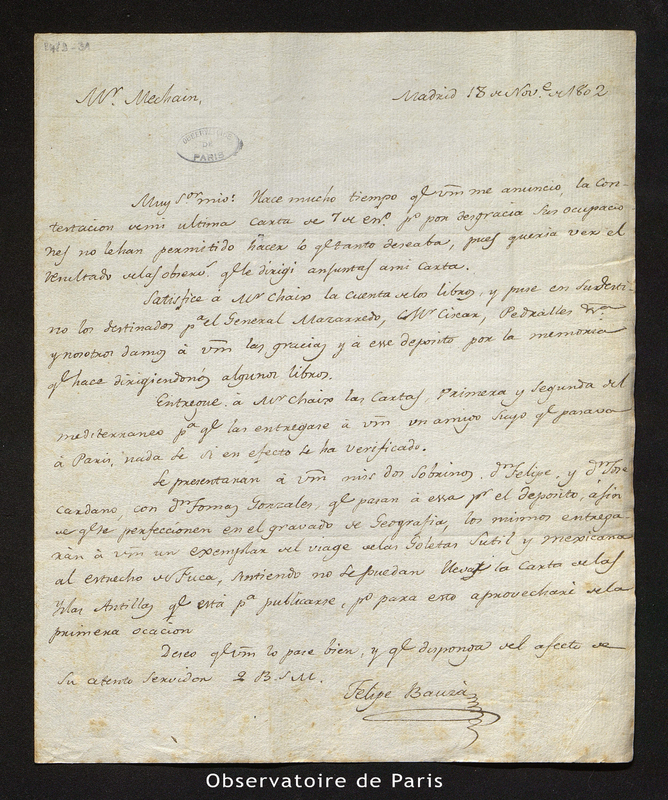 Mr. Mechain,
Madrid 18 de Nov.e de 1802
OBSERVATOIRE DE PARIS
Muy Sor. mio: Hace mucho tiempo qe Vm me anuncio la Con-
testacion de mi ultima Carta de 7 de eno. po por desgracia Sus ocupacio
nes no le han permitido hacer lo qe tanto deseaba, pues queria ver el
resultado de las observs. qe le dirigi adjuntas a mi Carta.
Satisfice à Mr Chaix la cuenta de los libros, y puse en su desti-
no los destinados pa el General Mazarredo, Ciscar, Pedralles
y nosotros damos à Vm las gracias y a ese deposito por la memoria
qe hace dirigiendonos algunos libros.
Entregue à Mr Chaix las Cartas, Primera y Segunda del
mediterraneo pa qe las entregase à Vm un amigo Suyo qe pasava
à Paris, nada se si en efecto se ha verificado.
Se presentaran à Vm mis dos Sobrinos, dn Felipe, y dn Jose
Cardano, con dn Tomas Gonzales, qe pasan à esa pr el deposito, à fin
de qe se perfeccionen en el gravado de Geografia, los mismos entrega-
ràn à Vm un exemplar del viage de las Goletas Sutil y mexicana
al estrecho de Fuca, sintiendo no se puedan llevar la Carta de las
Yslas Antillas qe està pa publicarse, po para esto aprovecharè de la
primera ocacion
Deseo qe Vm lo pase bien, y qe disponga del afecto de
Su atento Servidor Q B. S M.
Felipe Bauzà
Observatoire de Paris